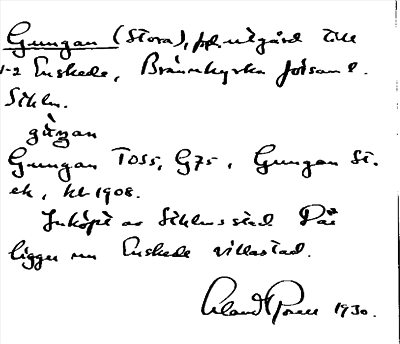 Gungan (Stora), ppl. utgård till
1-2 Enskede, Brännkyrka församl.
Sthlm.
gùŋan
Gungan T055, G75. Gungan St.
ek, kt 1908.
Inköpt av Sthlms stad Där
ligger nu Enskede villastad.
1930.